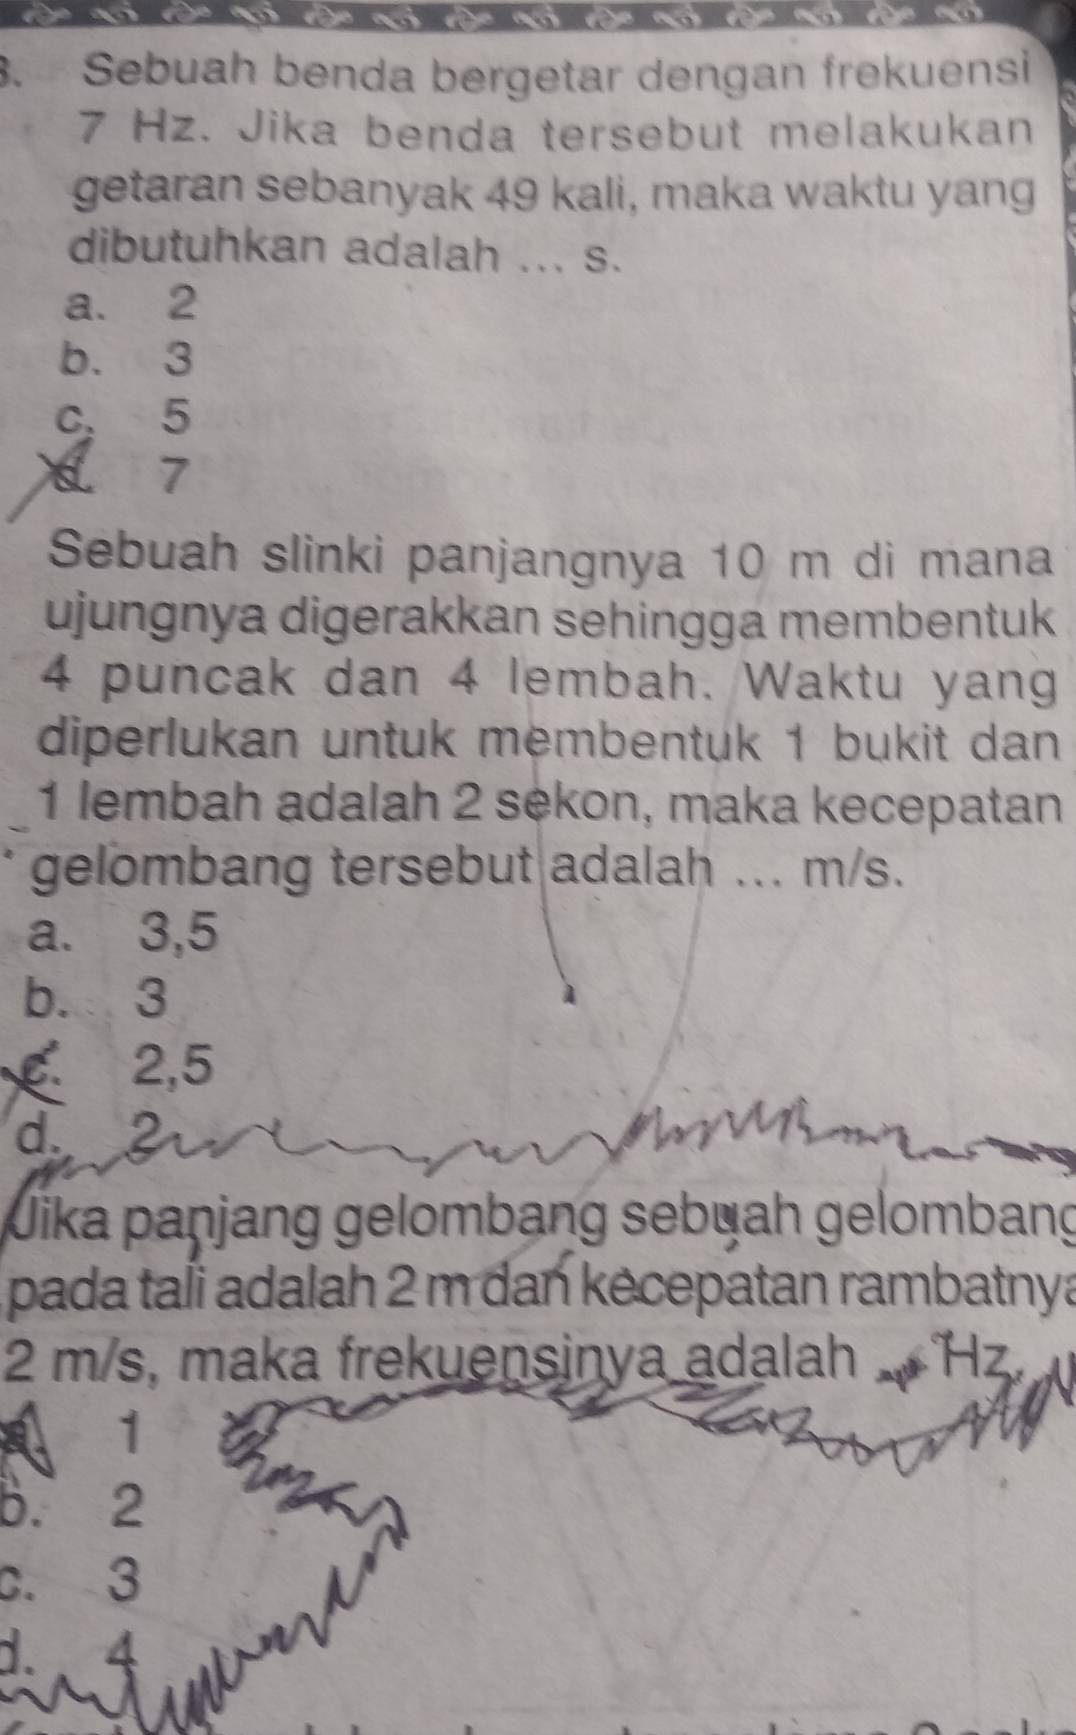 3. Sebuah benda bergetar dengan frekuensi
7 Hz. Jika benda tersebut melakukan
getaran sebanyak 49 kali, maka waktu yang
dibutuhkan adalah ... s.
a. 2
b. 3
c. 5
d. 7
Sebuah slinki panjangnya 10 m di mana
ujungnya digerakkan sehingga membentuk
4 puncak dan 4 lembah. Waktu yang
diperlukan untuk membentuk 1 bukit dan
1 lembah adalah 2 sekon, maka kecepatan
gelombang tersebut adalah ... m/s.
a. 3,5
b. 3
c. 2,5
d. 2
Jika panjang gelombang sebuah gelombang
pada tali adalah 2 m dan kecepatan rambatnya
2 m/s, maka frekuensinya adalah ... Hz.
a. 1
b. 2
c. 3
d. 4